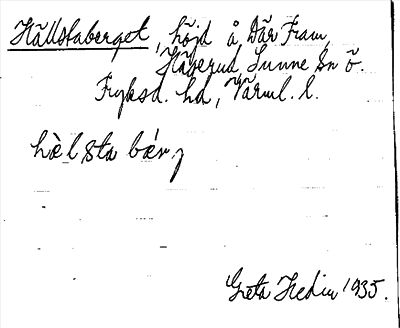 Hällstaberget, höjd å Där Fram,
Hägerud, Sunne sn ö.
Fryksd. hd, Värml. l.
hèl sta bǽrj
Greta Hedin 1935.